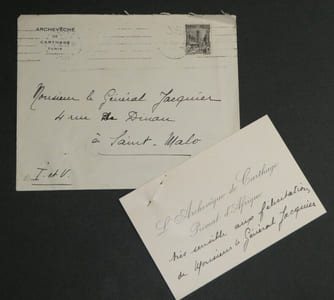 ARCHEVÊCHÉ
DE
CARTHAGE
TUNIS
Monsieur le Général Jacquier
4 rue de Dinan
à Saint-Malo
I et V.
L'Archevêque de Carthage
Primat d'Afrique
très sensible aux félicitations,
de Monsieur le Général Jacquier